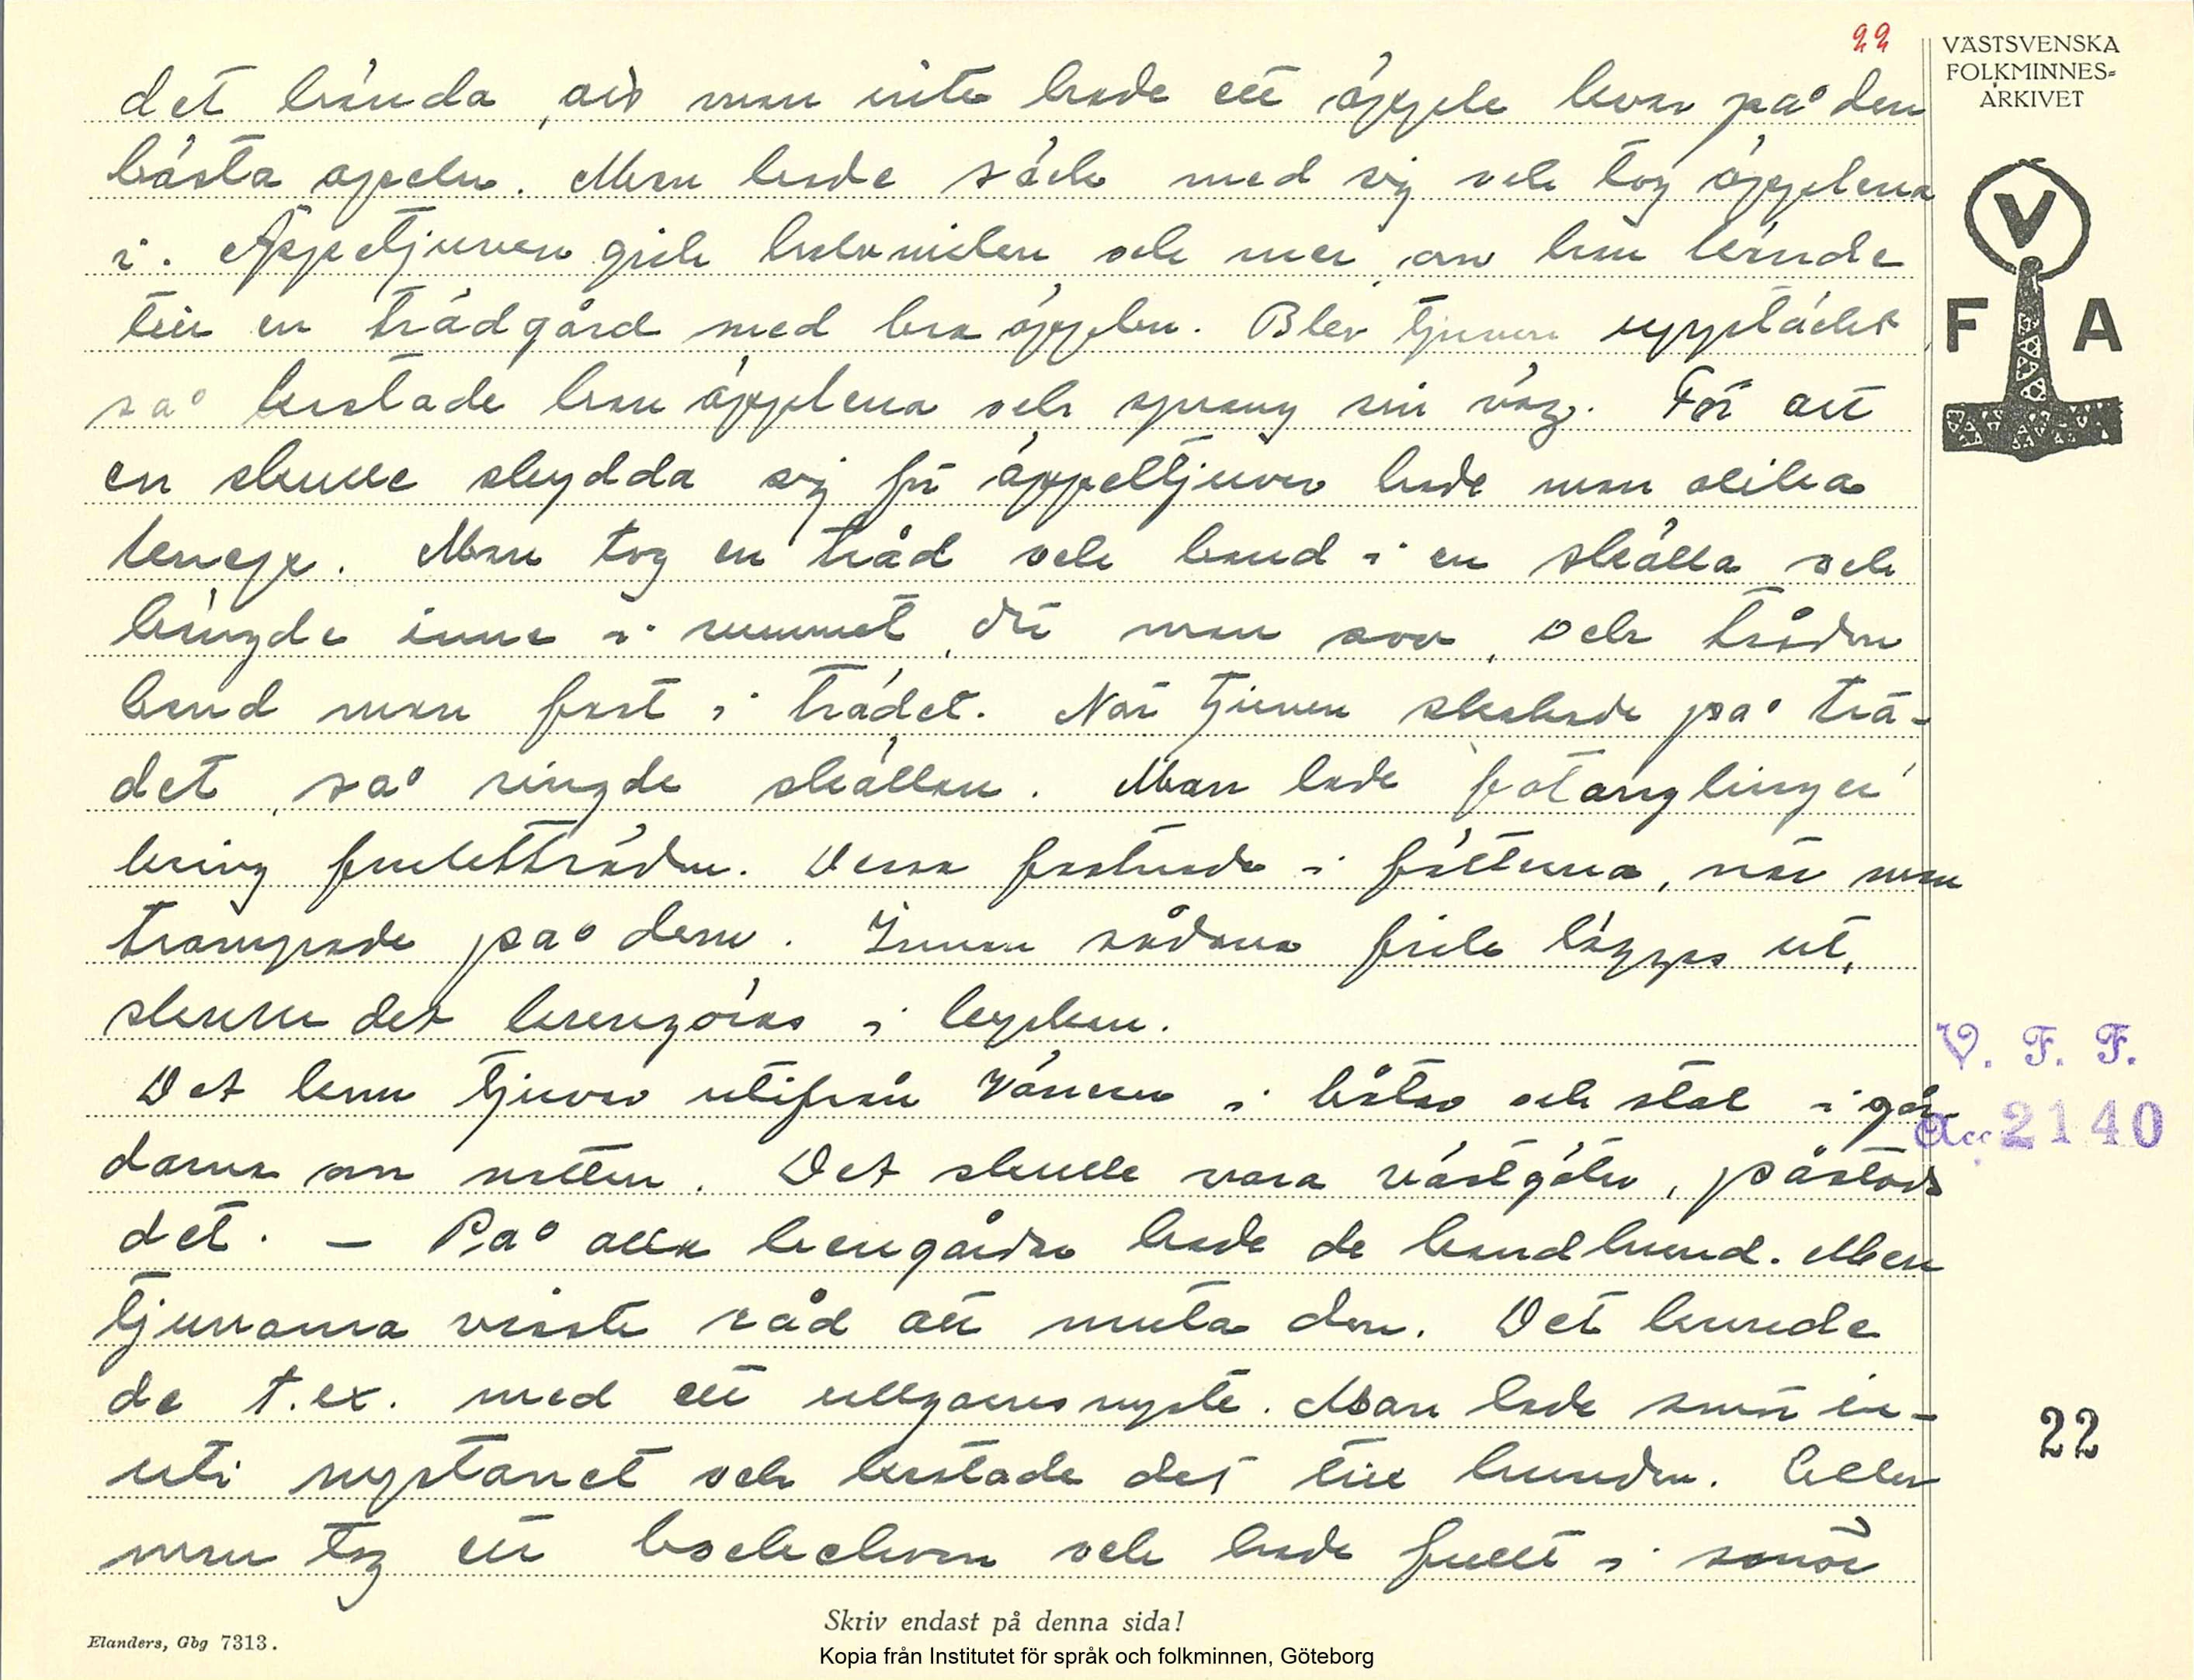 22
VÄSTSVENSKA
FOLKMINNES=
ARKIVET
det hända, att man inte hade ett äpple kvar på den
bästa apeln. Man hade säck med sig och tog äpplena
i. Äppeltjuven gick halvmilen och mer, om han kände
till en trädgård med bra äpplen. Blev tjuven upptäckt
så kastade han äpplena och sprang sin väg. För att
en skulle skydda sig för äppeltjuvar hade man olika
knep. Man tog en tråd och band i en skälla och
hängde inne i rummet, där man sov, och tråden
band man fast i trädet. När tjuven skakade på trä-
det, så ringde skällan. Man lade "fotanglinger"
kring fruktträden. Dessa fastnade i fötterna, när man
trampade på dem. Innan sådana fick läggas ut,
skulle det kungöras i kyrkan.
Det kom tjuvar utifrån Vänern i båtar och stal i går-
darna om natten. Det skulle vara västgötar, påstods
det. – På alla herrgårdar hade de bandhund. Men
tjuvarna visste råd att muta den. Det kunde
de t.ex. med ett ullgarnsnyste. Man lade smör in-
uti nystanet och kastade det till hunden. Eller
man tog ett bockhorn och hade fullt i smör
V
F A
V. F. F.
Acc 2140
22
Skriv endast på denna sida!
Elanders, Gbg 7313.
Kopia från Institutet för språk och folkminnen, Göteborg